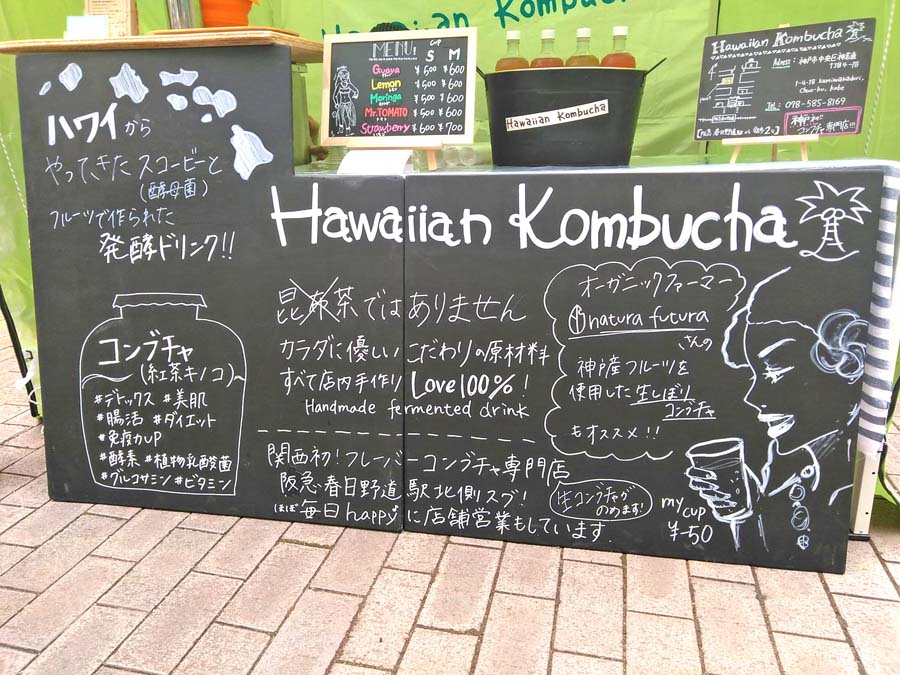 Hawaiian Kombucha
MENU!
CUP S M
Guava ¥500 ¥600
Lemon ¥500 ¥600
Moringa ¥500 ¥600
Mr.TOMATO ¥500 ¥600
Strawberry ¥600 ¥700
Hawaiian Kombucha
Hawaiian Kombucha
1-4-18 kamiwakadori,
Chuo-ku, kobe
Tel: 078-585-8169
コンブチャ専門店!!!
ハワイから
やってきたスコービーと
(酵母菌)
フルーツで作られた
発酵ドリンク!!
コンブチャ
(紅茶キノコ)
#デトックス #美肌
#腸活 #ダイエット
#免疫力UP
#酵素 #植物乳酸菌
#グルコサミン #ビタミン
Hawaiian Kombucha
昆布茶ではありません
カラダに優しい こだわりの原材料
すべて店内手作り Love100%!
Handmade fermented drink
関西初!フレーバーコンブチャ専門店
阪急春日野道 駅北側スグ!
ほぼ毎日happyに店舗営業もしています.
生コンブチャが
のめます!
オーガニックファーマー
natura futura
さんの
神戸産フルーツを
使用した生しぼり
コンブチャ
もオススメ!!
my
cup
¥-50